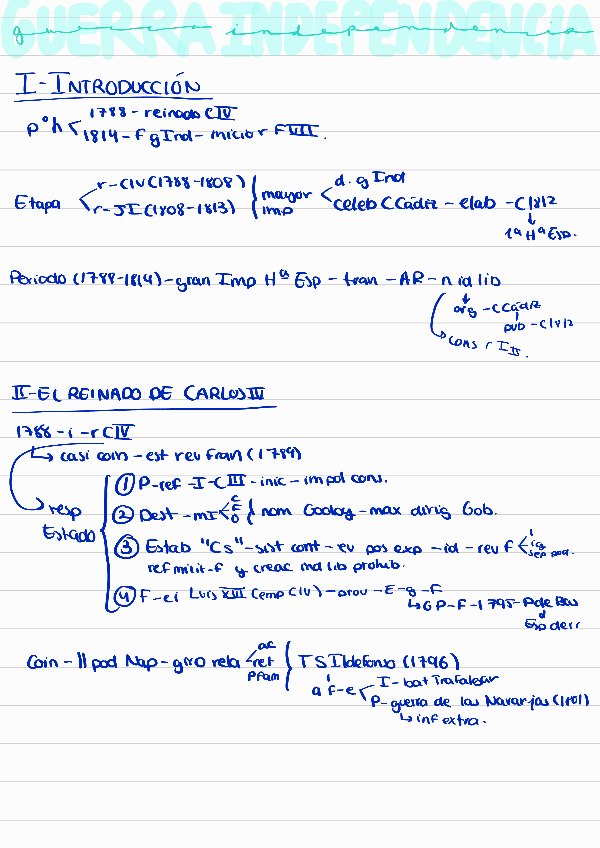 GUERRA INDEPENDENCIA
guerra independencia
I-INTRODUCCIÓN
pºh
1788-reinado CIV
1814-F g Ind-inicio r FVII.
Etapa
r-CIV(1788-1808)
r-JI(1808-1813)
mayor imp
d. g Ind
celeb CCádiz - elab - C1812
1ª Hª Esp.
Periodo (1788-1814)-gran Imp Hª Esp - tran - AR - n id lib
org - CCádiz
pub - C1812
cons r I
II-EL REINADO DE CARLOS IV
1788-i-r CIV
casi coin - est rev fran (1789)
resp Estado
① P-ref-I-CIII-inic-impol cons.
② Dest-mI
C
F
O
nom Godoy-max dirig Gob.
③ Estab "Cs"-sist cont-ev pos exp-id-rev f
ig
sep pod.
ref milit-f y creac nd lib prohib.
④ F-ej Luis XVI (emp CIV)-prov-E-g-F
GP-F-1795-Pde Bas
Esp derr
Coin-ll pod Nap-giro rela
ac
ret
PFam
TSIldefonso (1796)
a f-e
I-bat Trafalgar
P-guerra de las Naranjas (1801)
inf extra.